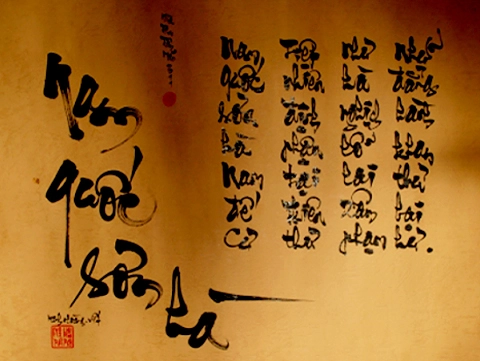 Nam
quốc
sơn
hà
Nam quốc sơn hà Nam đế cư
Tiệt nhiên định phận tại thiên thư
như hà nghịch lỗ lai xâm phạm
nhữ đẳng hành khan thủ bại hư.